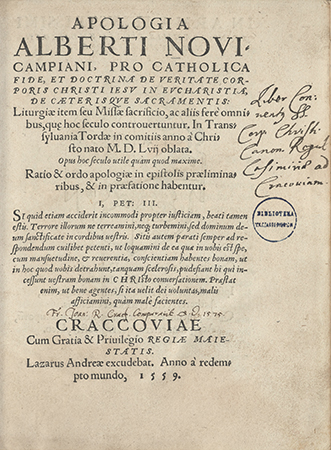 APOLOGIA
ALBERTI NOVI-
CAMPIANI, PRO CATHOLICA
FIDE, ET DOCTRINA DE VERITATE COR-
PORIS CHRISTI IESV IN EVCHARISTIA,
DE CÆTERISQVE SACRAMENTIS:
Liturgiæ item seu Missæ sacrificio, ac aliis ferè omni-
bus, quę hoc seculo controuertuntur. In Tran-
syluania Tordæ in comitiis anno à Chri
sto nato M. D. Lvij oblata.
Opus hoc seculo utile quàm quod maxime.
Ratio & ordo apologiæ in epistolis prælimina
ribus, & in præfatione habentur.
I, PET: III.
Si quid etiam acciderit incommodi propter iusticiam, beati tamen
estis. Terrore illorum ne terreamini, neq; turbemini, sed dominum de-
um sanctificate in cordibus uestris. Sitis autem parati semper ad re-
spondendum cuilibet petenti, ut loquamini de ea quæ in uobis est spe,
cum mansuetudine, & reuerentia, conscientiam habentes bonam, ut
in hoc quod uobis detrahunt, tanquam scelerosis, pudefiant hi qui in-
cessunt uestram bonam in CHRISTO conuersationem. Præstat
enim, ut bene agentes, si ita uelit dei uoluntas, mali
afficiamini, quàm malè facientes.
CRACCOVIAE
Cum Gratia & Priuilegio REGIÆ MAIE-
STATIS.
Lazarus Andreæ excudebat. Anno à redem-
pto mundo, 1559.
Liber Con-
Corp Christi
Canon. Regul
BIBLIOTEKA